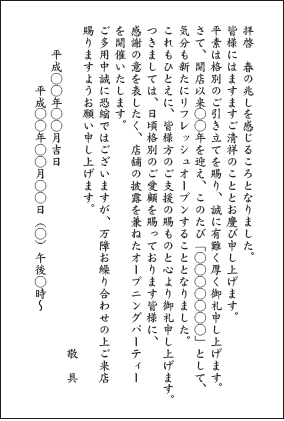 拝啓　春の兆しを感じるころとなりました。
皆様にはますますご清祥のこととお慶び申し上げます。
平素は格別のご引き立てを賜り、誠に有難く厚く御礼申し上げます。
さて、開店以来〇〇年を迎え、このたび「〇〇〇〇〇〇」として、
気分も新たにリフレッシュオープンすることとなりました。
これもひとえに、皆様方のご支援の賜ものと心より御礼申し上げます。
つきましては、日頃格別のご愛顧を賜っております皆様に、
感謝の意を表したく、店舗の披露を兼ねたオープニングパーティー
を開催いたします。
ご多用中誠に恐縮ではございますが、万障お繰り合わせの上ご来店
賜りますようお願い申し上げます。
敬　具
平成〇〇年〇〇月吉日
平成〇〇年〇〇月〇〇日（〇）午後〇時〜